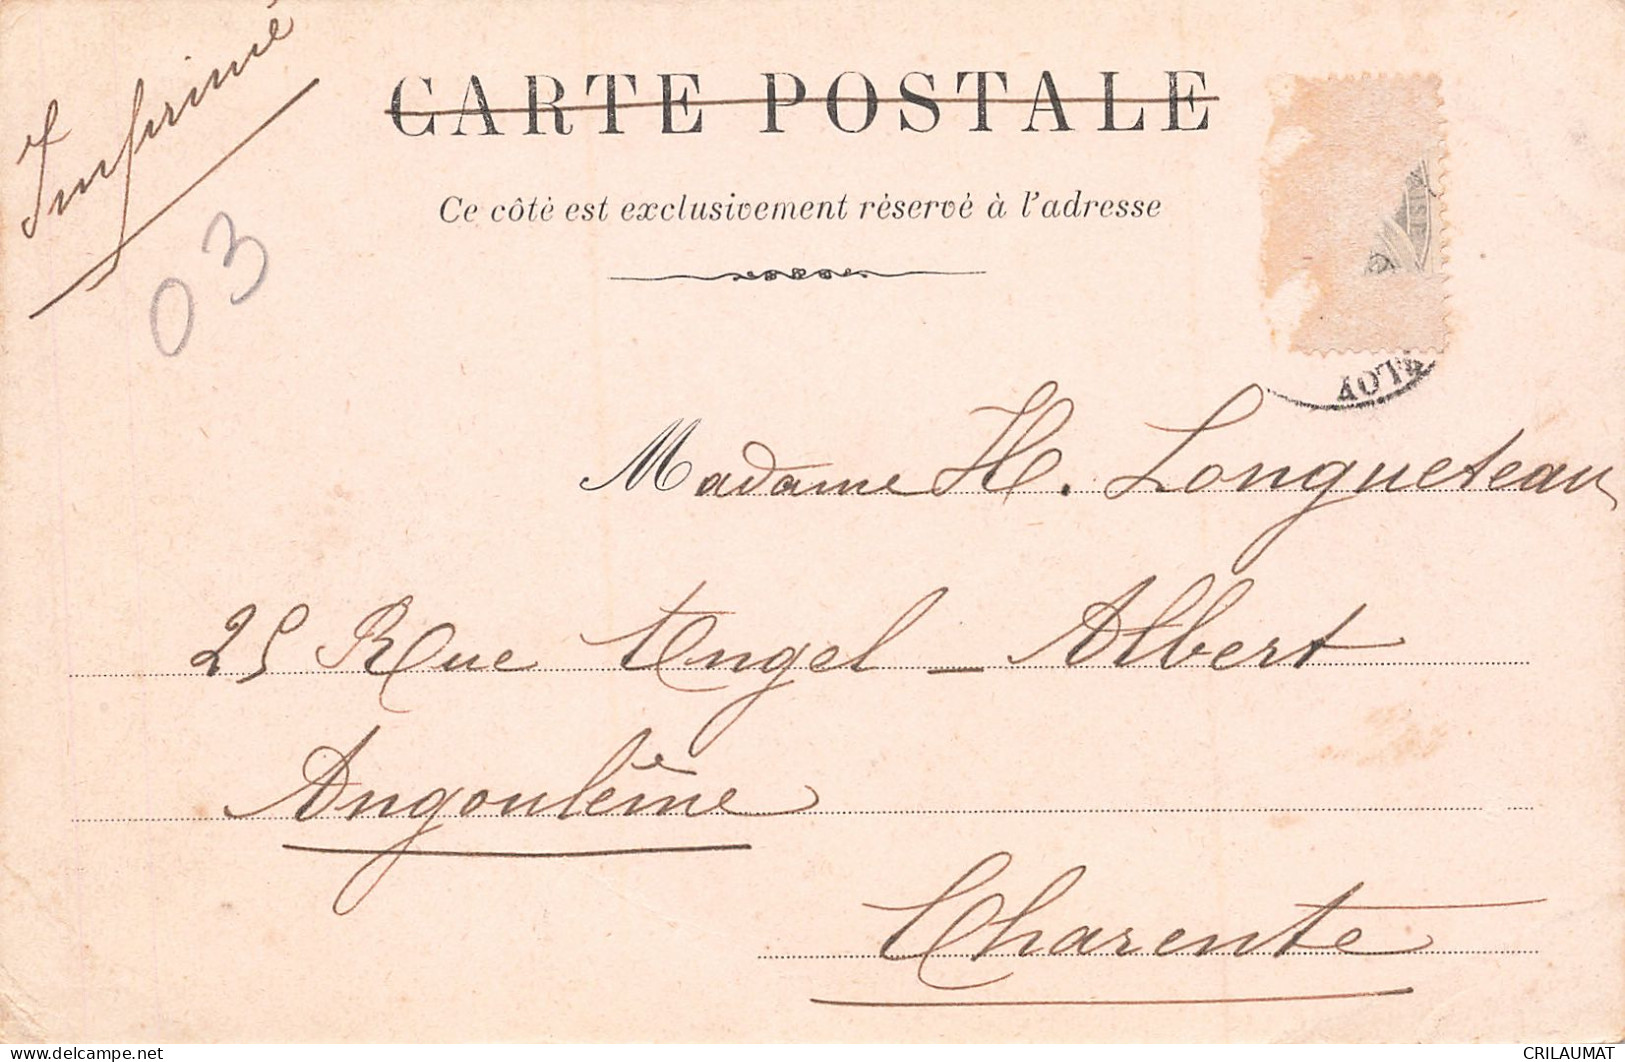 Imprimé
CARTE POSTALE
Ce côté est exclusivement réservé à l'adresse
03
Madame H. Longueteau
25 Rue Engel - Albert
Angoulême
Charente
CRILAUMAT